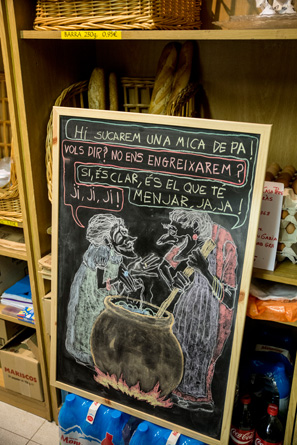 BARRA 250g 0,95€
Hi SUCAREM UNA MICA DE PA!
VOLS DIR? NO ENS ENGREIXAREM?
SI, ÉS CLAR, ÉS EL QUE TÉ
MENJAR, JA, JA!
JI, JI, JI!
MARISCOS